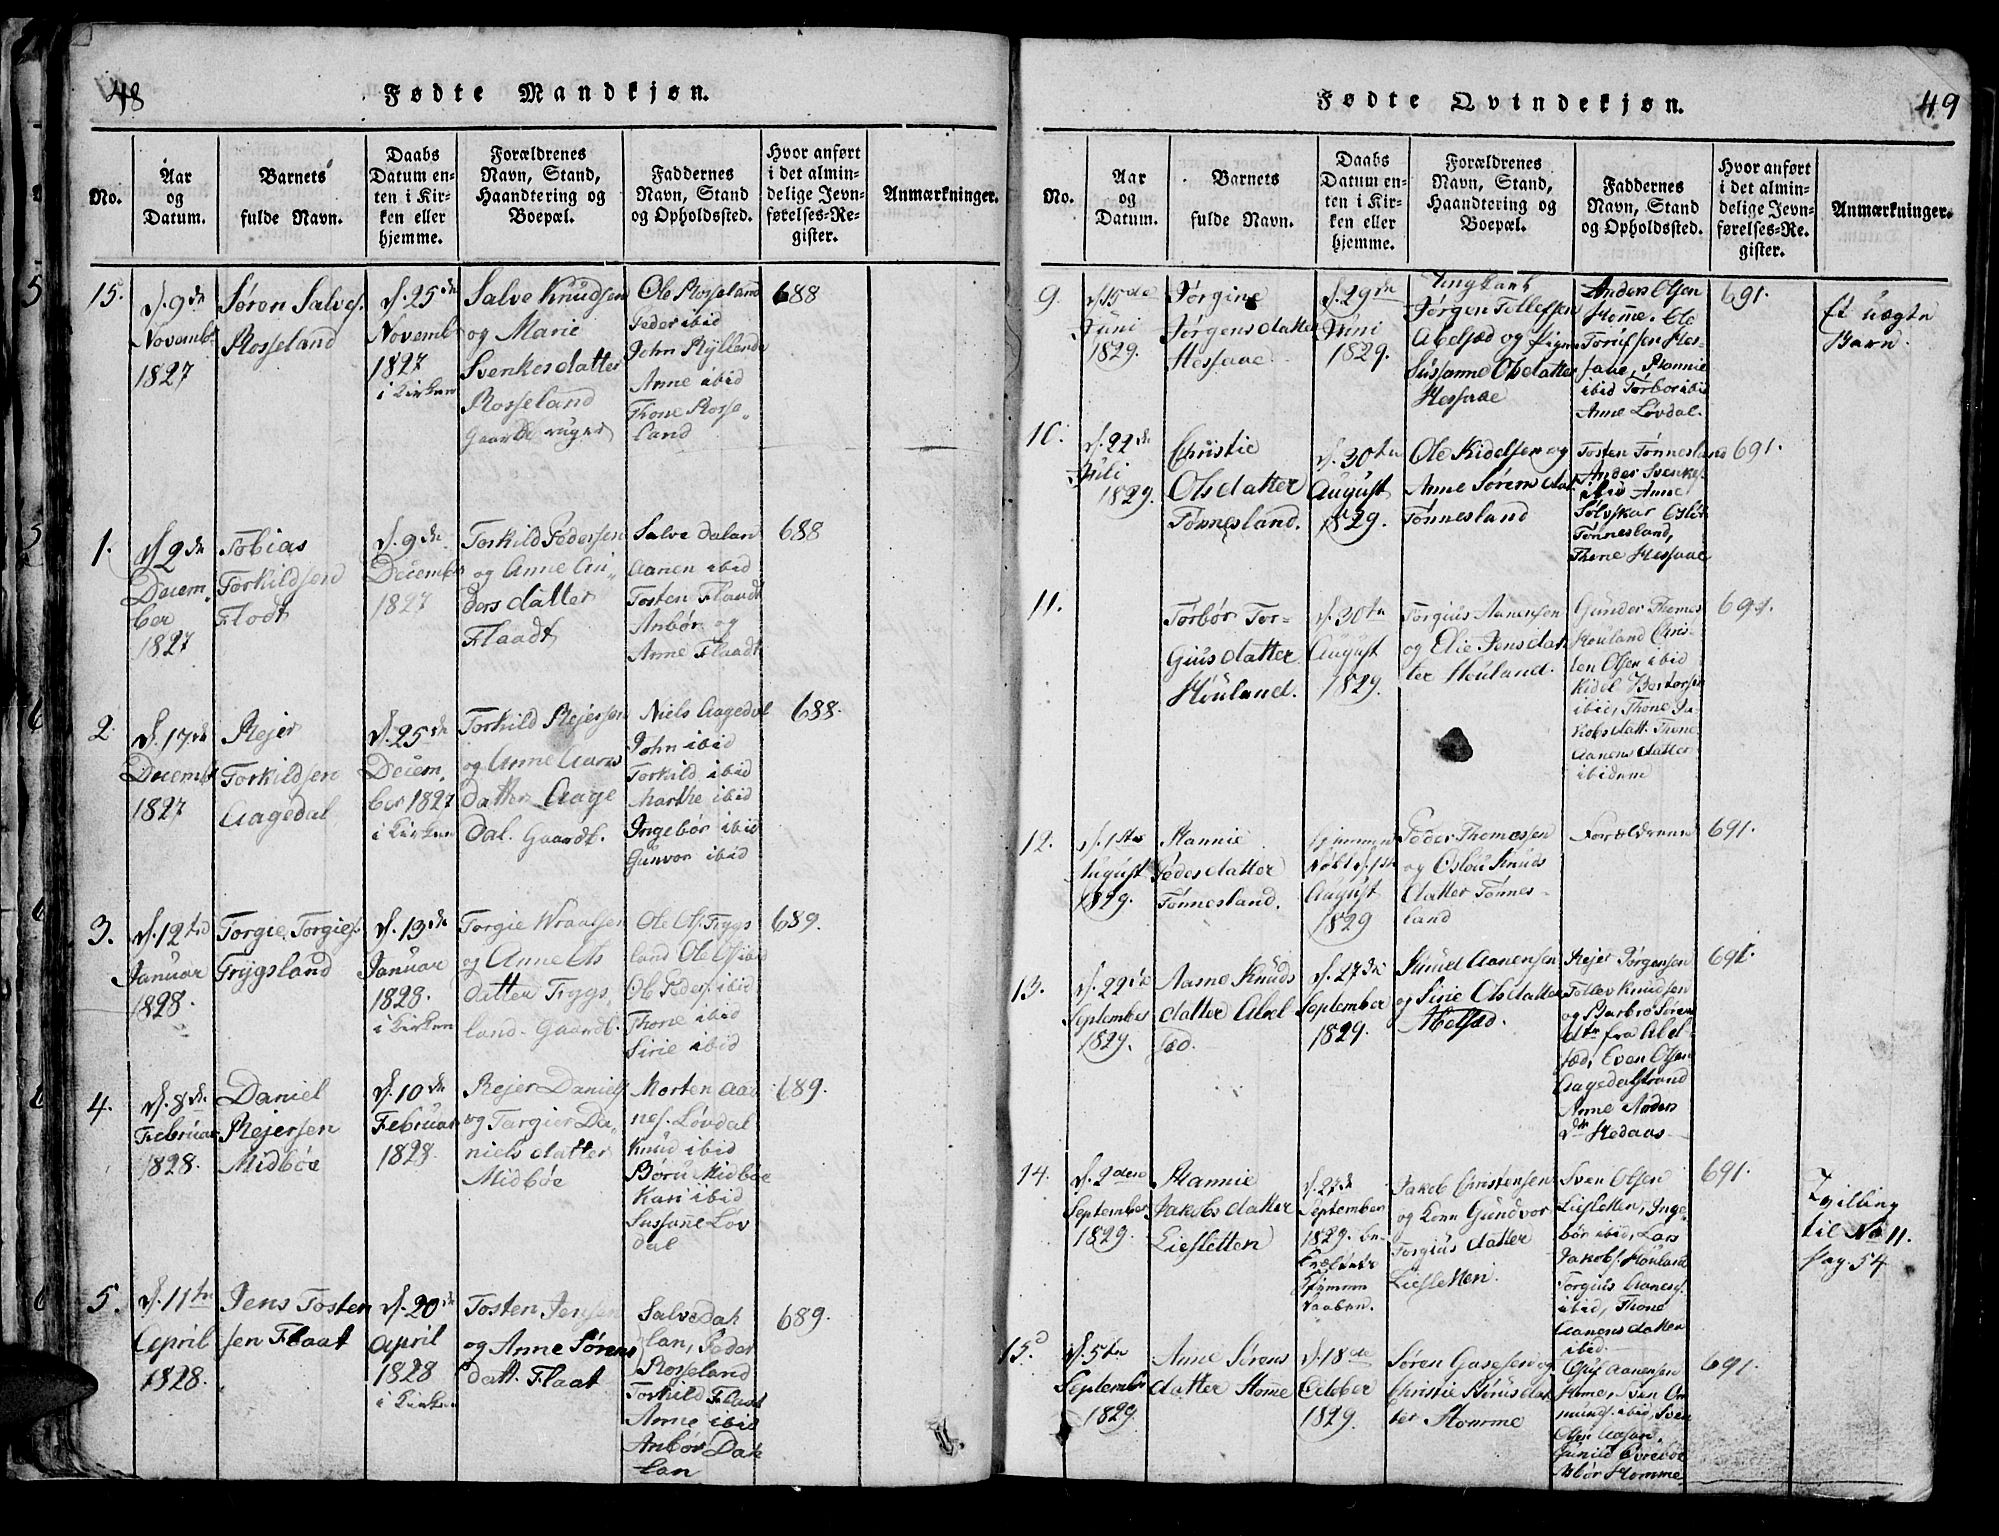 48
Fødte Mandkjøn.
No.
Aar
og
Datum.
Barnets
fulde Navn.
Daabs
Datum en-
ten i Kir-
ken eller
hjemme.
Forældrenes
Navn, Stand,
Haandtering og
Boepæl.
Faddernes
Navn, Stand
og Opholdssted.
Hvor anført
i det almin-
delige Jevn-
førelses-Re-
gister.
Anmærkninger.
15.
d. 9de
Novembr
1827
Søren Salves.
Rosseland
d. 25de
Novemb
1827
i Kirken
Salve Knudsen
og Marie
Svenkesdatter
Rosseland
Gaardbruger
Ole Rosseland
Peder ibid
John Ryllend
Anne ibid
Thone Rosse-
land
688
1.
d. 2de
Decem-
ber
1827
Tobias
Torkildsen
Flodt
d. 9de
December
1827
Torkild Pedersen
og Anne An-
dersdatter
Flaadt
Salve Dalan
Aanen ibid
Tosten Flaadt
Anbør og
Anne Flaadt
688
2.
d. 17de
Decembr
1827
Rejer
Torkildsen
Aagedal
d. 25de
Decem-
ber 1827
i Kirken
Torkild Rejersen
og Anne Aans
datter Aage
dal. Gaardb.
Niels Aagedal
John ibid
Torkild ibid
Marthe ibid
Ingebør ibid
Gunvor ibid
688.
3.
d. 12te
Januar
1828
Torgie Torgies.
Trygsland
d. 13de
Januar
1828.
i Kirken
Torgie Wraalsen
og Anne Ols
datter Trygs
land. Gaardb.
Ole Ols. Trygs
land Ole Ols ibid
Ole Peders. ibid
Thone ibid
Sirie ibid
689.
4.
d. 8de
Februar
1828.
Daniel
Rejersen
Midbøe
d. 10de
Februar
1828.
Rejer Daniels
og Targier Da-
nielsdatter
Midbøe
Morten Aad
nes. Løvdal
Knud ibid
Børu Midbøe
Kari ibid
Sussanne Løv
dal
689.
5.
d. 11te
April
1828.
Jens Tosten
sen Flaat
d. 20de
April
1828
i Kirken
Tosten Jensen
og Anne Sørens
datt. Flaat
Salve Dah
lan, Peder
Rosseland
Torkild Flaat
Anne ibid
Anbør Dah
lan
689.
49
Fødte Qvindekjøn.
No.
Aar
og
Datum.
Barnets
fulde Navn.
Daabs
Datum en-
ten i Kir-
ken eller
hjemme.
Forældrenes
Navn, Stand,
Haandtering og
Boepæl.
Faddernes
Navn, Stand
og Opholdssted.
Hvor anført
i det almin-
delige Jevn-
førelses-Re-
gister.
Anmærkninger.
9.
d. 15de
Juni
1829.
Jørgine
Jørgensdatter
Hessaae
d. 29de
Juni
1829.
Ungkarl
Jørgen Tollefsen
Abelsæd og Pigen
Sussanne Olsdatter
Hessaae
Anders Olsen
Homme. Ole
Torufsen Hes-
saae, Hannie
ibid Torbor ibid
Anne Løvdal.
691.
Et uægte
Barn.
10.
d. 22de
Juli
1829.
Christie
Olsdatter
Tønnesland.
d. 30te
August
1829.
Ole Kidelsen og
Anne Sørensdat
Tønnesland
Tosten Tønnesland
Ander Svenkes
ibid Anne
Sølvskar Oslei
Tønnesland,
Thone Hessaae
691.
11.
Torbør Tor-
giusdatter
Houland.
d. 30te
August
1829.
Torgius Aanensen
og Elie Jensdat
ter Houland.
Gunder Thomes
Houland Chris-
ten Olsen ibid
Kidel
ibid, Thone Ja-
kobsdatt. Thone
Aanensdatter
ibidem
691.
12.
d. 1ste
August
1829.
Hannie
Pedersdatter
Tønnesland.
Hjemme
døbt d. 1ste
August
1829
Peder Thomessen
og Oslou Knuds
datter Tønnes-
land
Forældrene
691.
13.
d. 22de
September
1829.
Aasne Knuds
datter Abel
sæd.
d. 27de
September
1829.
Knud Aanensen
og Sirie Olsdatter
Abelsæd.
Rejer Jørgensen
Tollev Knudsen
og Barbro Sørens
dtr fra Abel
sæd, Even Olsen
Aagedalstrand
Anne Anders
dtr Hedaas
691.
14.
d. 2den
September
1829.
Hannie
Jakobsdatter
Liesletten
d. 27de
September
1829.
Jakob Christensen
og Kone Gundvor
Torgius datter
Liesletten.
Sven Olsen
Liesletten, Inge-
bør ibid, Lars
Jakobs. Houland
Torgius Aanens.
ibid, Thone
Aanensdatter
ibid.
691.
Tvilling
til No 11.
pag. 54
15.
d. 5te
September
1829.
Anne Sørens
datter Homme
d. 18de
October
1829.
Søren Gasesen og
Christie Børusdat
ter Homme
Aanensen
Homme, Sven Or
munds. ibid, Sven
Olsen Aasan.
Gunild Øvrebøe
Asbør Homme
691.